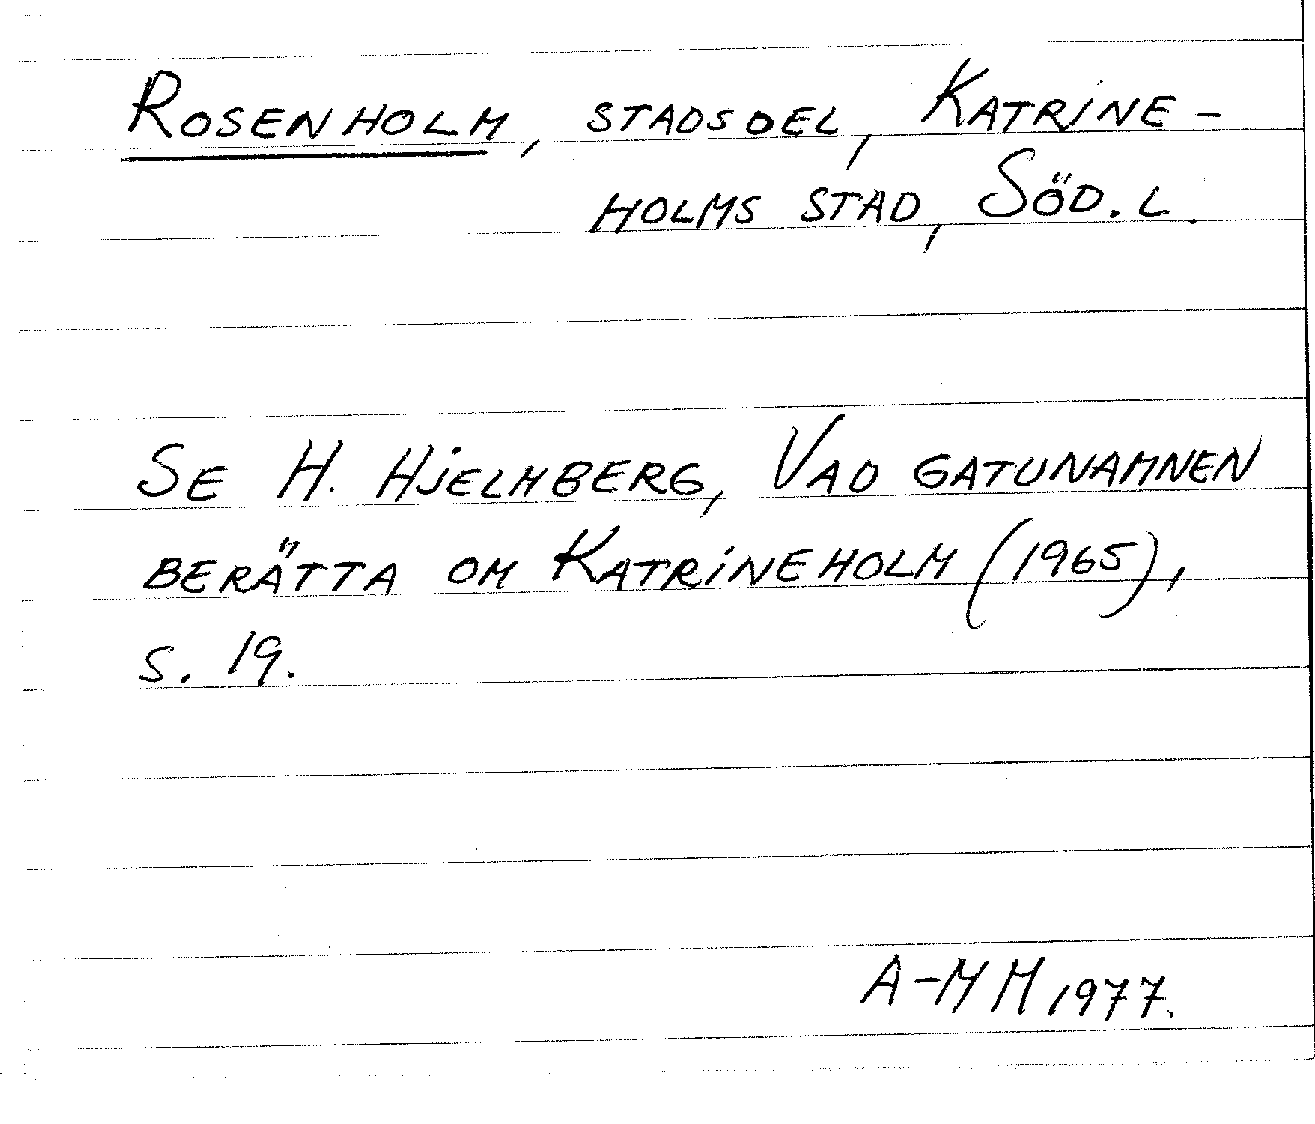 ROSENHOLM, STADSDEL, KATRINE-
HOLMS STAD, SÖD. L.
SE H. HJELMBERG, VAD GATUNAMNEN
BERÄTTA OM KATRINEHOLM (1965),
S. 19.
A-MM 1977.